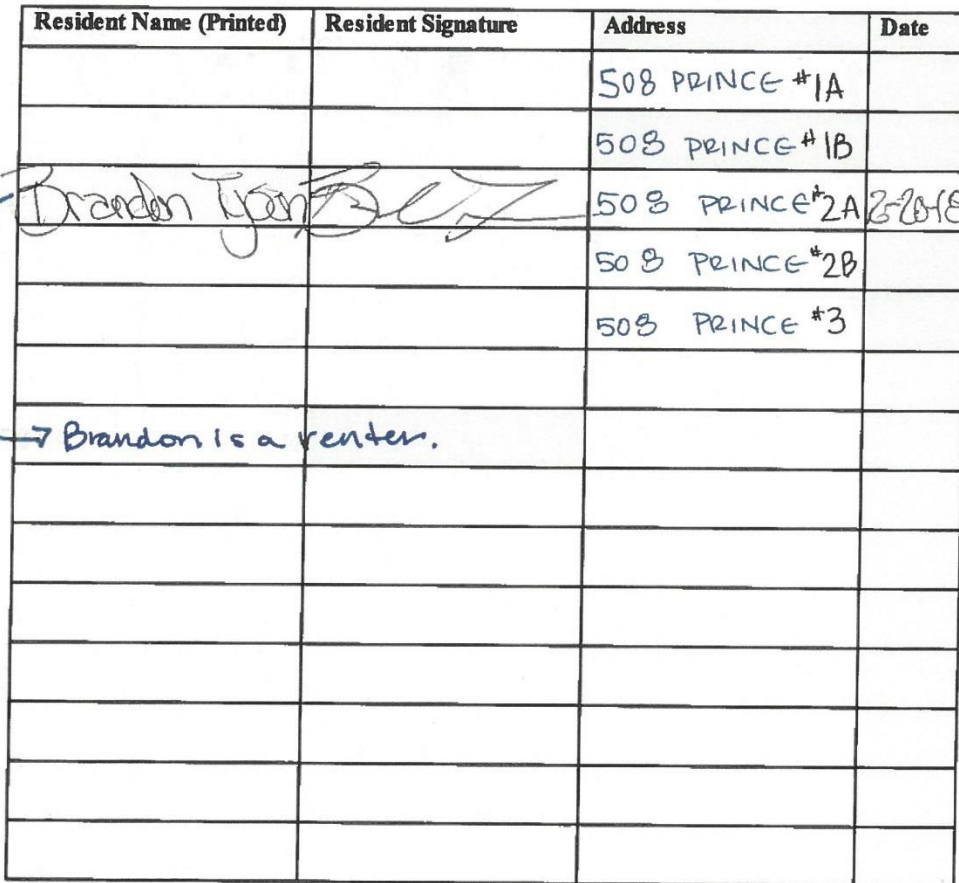 Resident Name (Printed) Resident Signature Address Date
508 PRINCE #1A
508 PRINCE #1B
Brandon 508 PRINCE #2A
508 PRINCE #2B
508 PRINCE #3
→ Brandon is a renter.